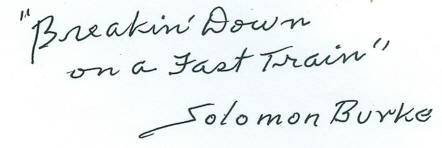 "Breakin' Down
on a Fast Train"
Solomon Burke